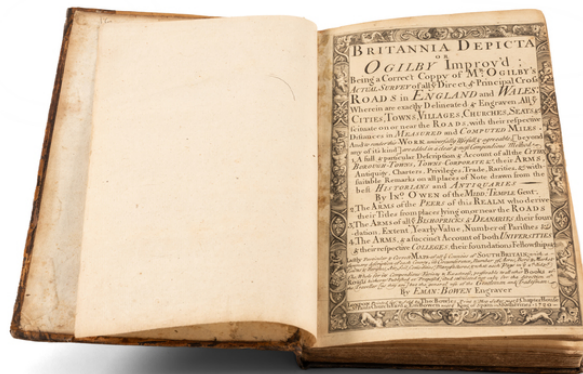 BRITANNIA DEPICTA
OR
OGILBY Improv'd;
Being a Correct Coppy of Mr. OGILBY'S
ACTUAL SURVEY of all ye Direct & Principal Cross
ROADS in ENGLAND and WALES:
Wherein are exactly Delineated & Engraven, All ye
CITIES, TOWNS, VILLAGES, CHURCHES, SEATS &c
scituate on or near the ROADS, with their respective
Distances in MEASURED and COMPUTED MILES
And to render this WORK universally Usefull & agreeable, beyond
any of its kind are added in a clear & most Compendious Method
1. A full & particular Description & Account of all the CITIES,
BOROUGH-TOWNS, TOWNS-CORPORATE &c their ARMS,
Antiquity, Charters, Privileges, Trade, Rarities, &c with
suitable Remarks on all places of Note drawn from the
best HISTORIANS and ANTIQUARIES
By Ino. OWEN of the MIDD: TEMPLE Gent:
2. The ARMS of the PEERS of this REALM who derive
their Titles from places lying on or near the ROADS
3. The ARMS of all ye BISHOPRICKS & DEANARIES, their foun
dation, Extent, Yearly Value, Number of Parishes &c
4. The ARMS, & a succinct Account of both UNIVERSITIES
& their respective COLLEGES, their foundations Fellowships
Lastly Particular & Correct MAPS of all ye Counties of SOUTH BRITAIN; with a
By EMAN: BOWEN Engraver